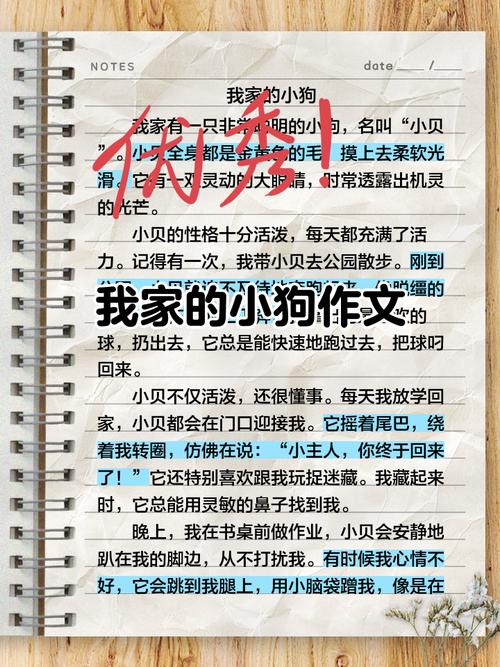 NOTES
date ____ / ____
我家的小狗
优秀!
我家有一只非常聪明的小狗，名叫“小贝
”。小贝全身都是金黄色的毛，摸上去柔软光
滑。它有一双灵动的大眼睛，时常透露出机灵
的光芒。
小贝的性格十分活泼，每天都充满了活
力。记得有一次，我带小贝去公园散步。刚到
我家的小狗作文
球，扔出去，它总是能快速地跑过去，把球叼
回来。
小贝不仅活泼，还很懂事。每天我放学回
家，小贝都会在门口迎接我。它摇着尾巴，绕
着我转圈，仿佛在说：“小主人，你终于回来
了！”它还特别喜欢跟我玩捉迷藏。我藏起来
时，它总能用灵敏的鼻子找到我。
晚上，我在书桌前做作业，小贝会安静地
趴在我的脚边，从不打扰我。有时候我心情不
好，它会跳到我腿上，用小脑袋蹭我，像是在